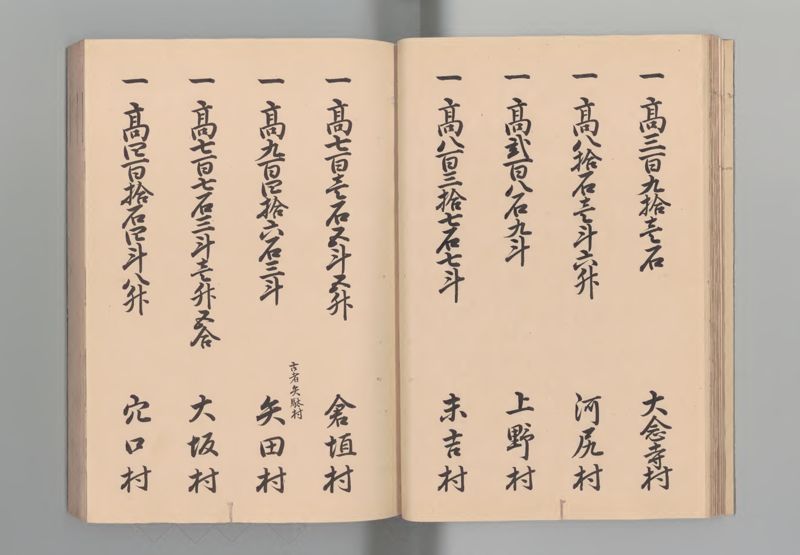 一 高三百九拾壱石 大念寺村
一 高八拾石壱斗六升 河尻村
一 高弐百八石九斗 上野村
一 高八百三拾七石七斗 末吉村
一 高七百壱石五斗五升 倉垣村
古者矢駄村
一 高九百四拾六石三斗 矢田村
一 高七百七石三斗壱升五合 大坂村
一 高四百拾石四斗八升 穴口村